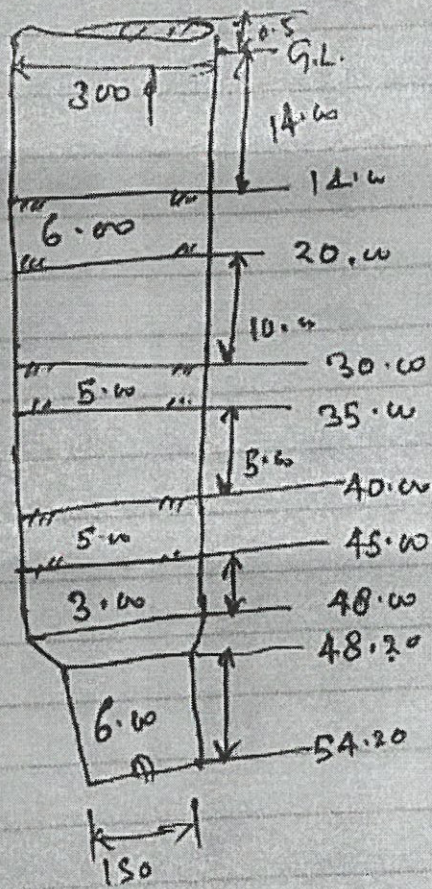 0.5
G.L.
300
14.00
14.00
6.00
20.00
10.00
30.00
5.00
35.00
5.00
40.00
5.00
45.00
3.00
48.00
48.20
6.00
54.20
150